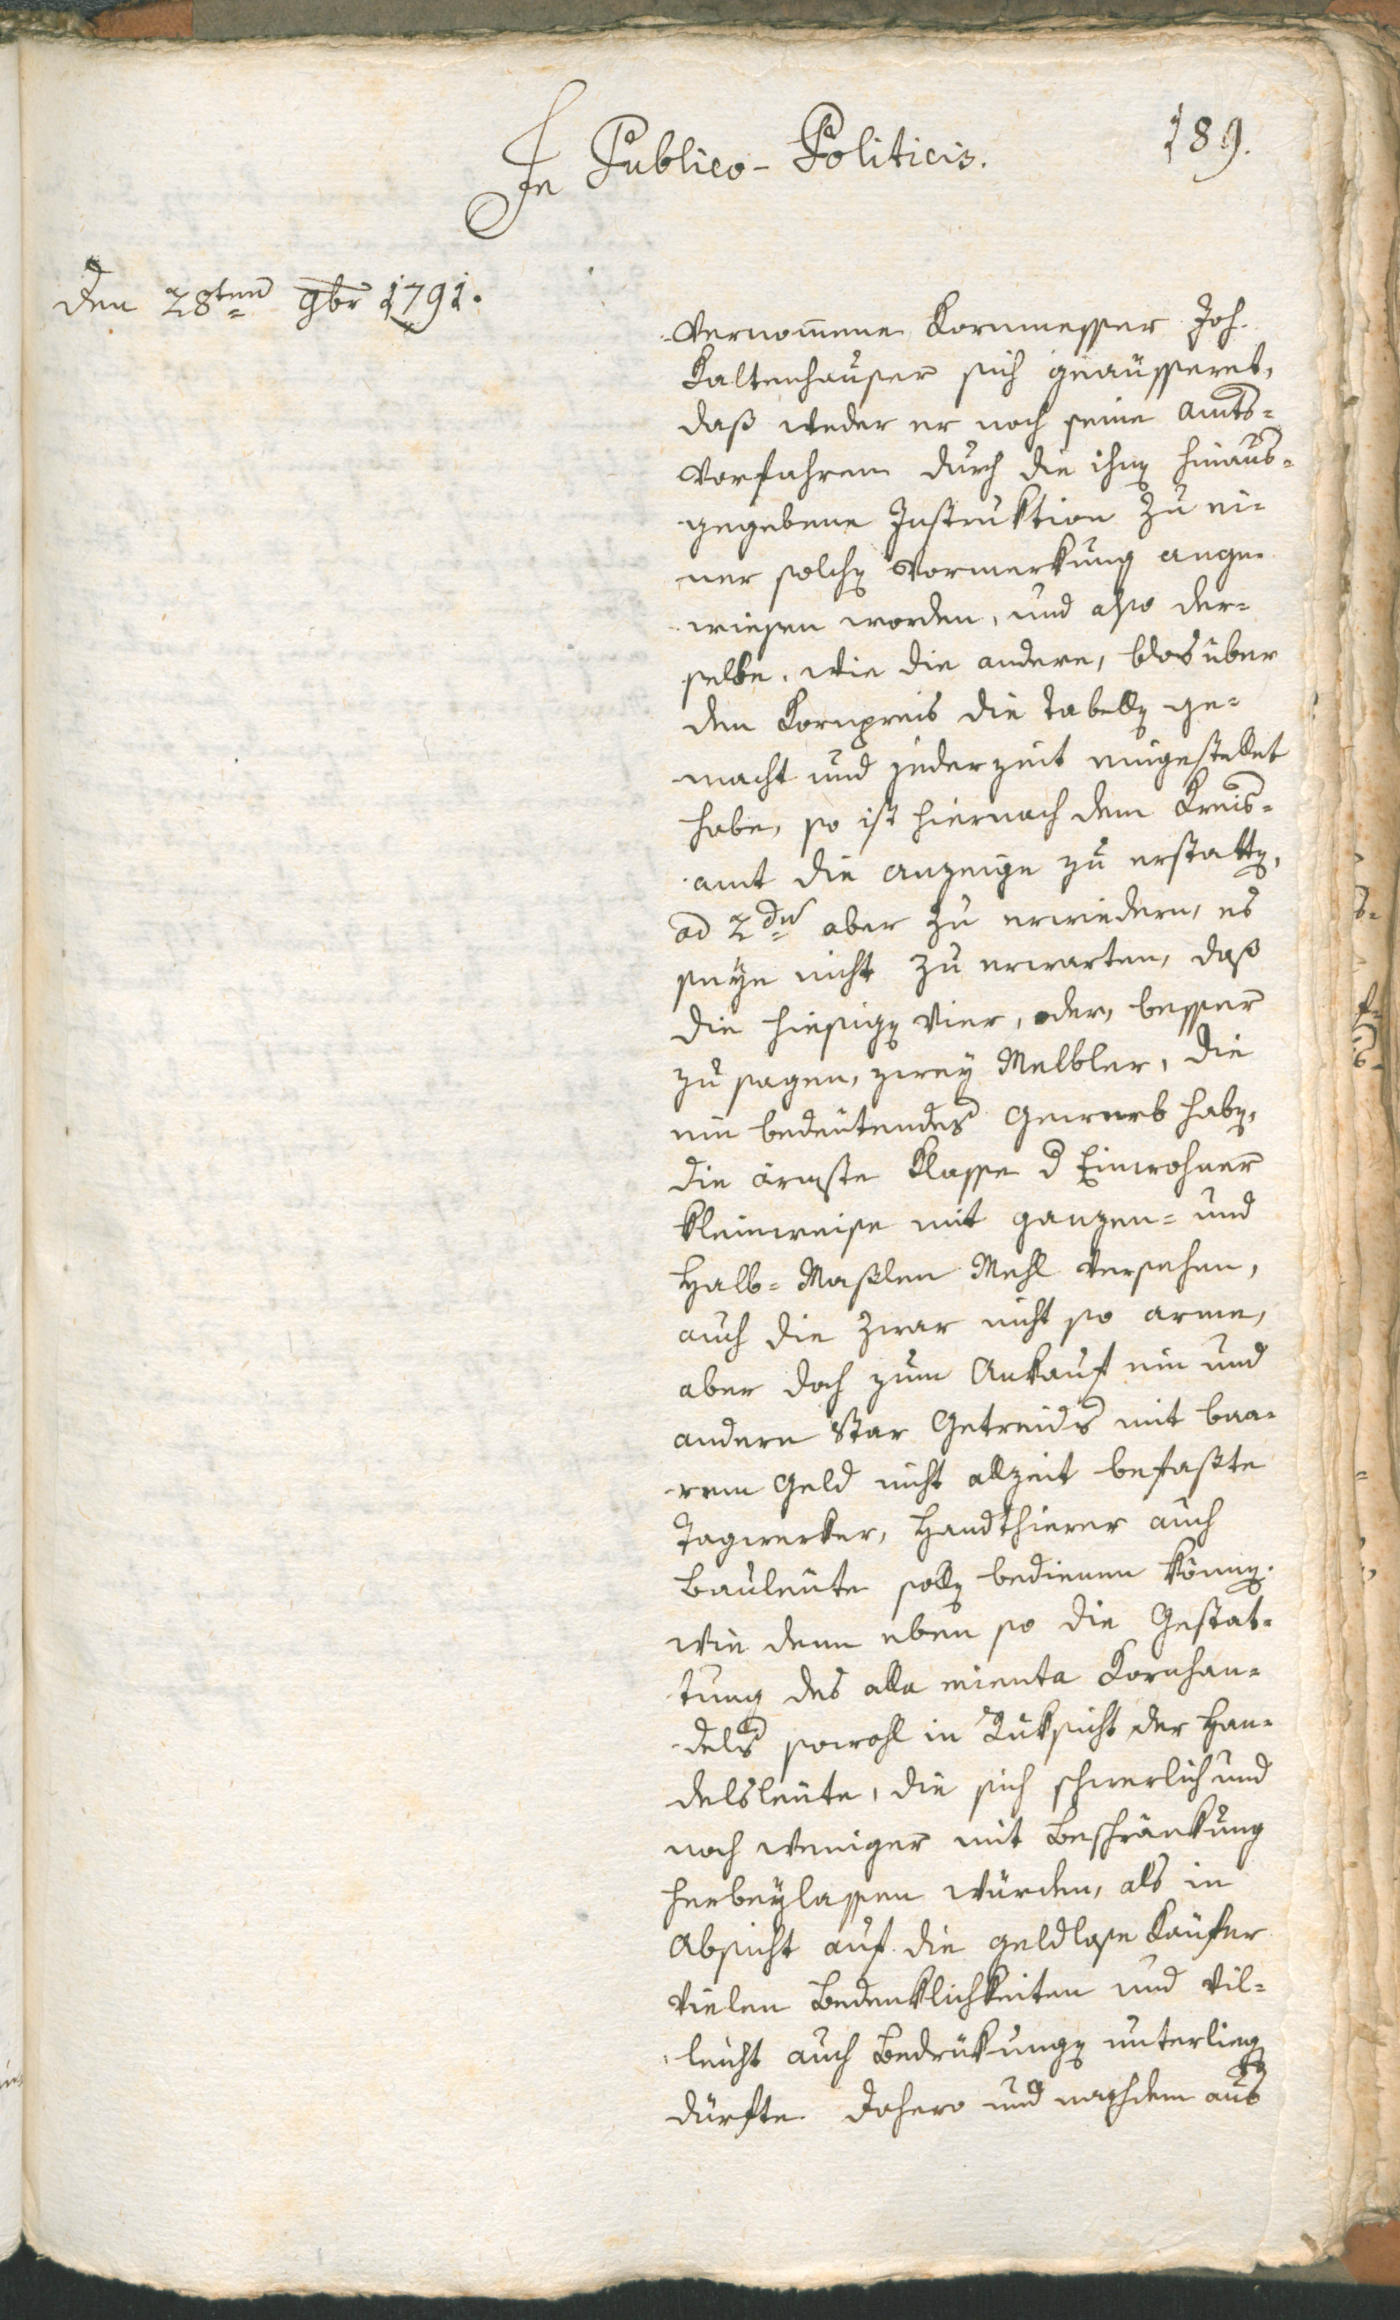 In Publico-Politicis.
189.
Den 28ten 9br 1791.
vernommene Kornmesser Joh.
Kaltenhauser sich geäusseret,
daß weder er noch seine Amts-
vorfahren durch die ihnen hinaus-
gegebene Instruktion zu ei-
ner solchen Vormerkung ange-
wiesen worden, und also der-
selbe, wie die andere, blos über
den Kornpreis die Tabellen ge-
macht und jederzeit eingestellet
habe, so ist hiernach dem Kreis-
amt die Anzeige zu erstatten,
ad 2dum aber zu erwiedern, es
seÿe nicht zu erwarten, daß
die hiesigen vier, oder, besser
zu sagen, zweÿ Melbler, die
ein bedeutendes Gewerb haben,
die ärmste Klasse d Einwohner
kleinweise mit ganzen- und
Halb-Maßlen Mehl versehen,
auch die zwar nicht so arme,
aber doch zum Ankauf ein und
andern Star Getreids mit baa-
rem Geld nicht allzeit befaßte
Tagwerker, Handthierer auch
Bauleute sollen bedienen können.
wie denn eben so die Gestat-
tung des alla mienta Kornhan-
dels sowohl in Rüksicht der Han-
delsleute, die sich schwerlich und
noch weniger mit Beschränkung
herbeÿlassen würden, als in
Absicht auf die geldlose Käufer
vielen Bedenklichkeiten und vil-
leicht auch Bedrükungen unterliegen
dürfte. Dahero und nachdem aus